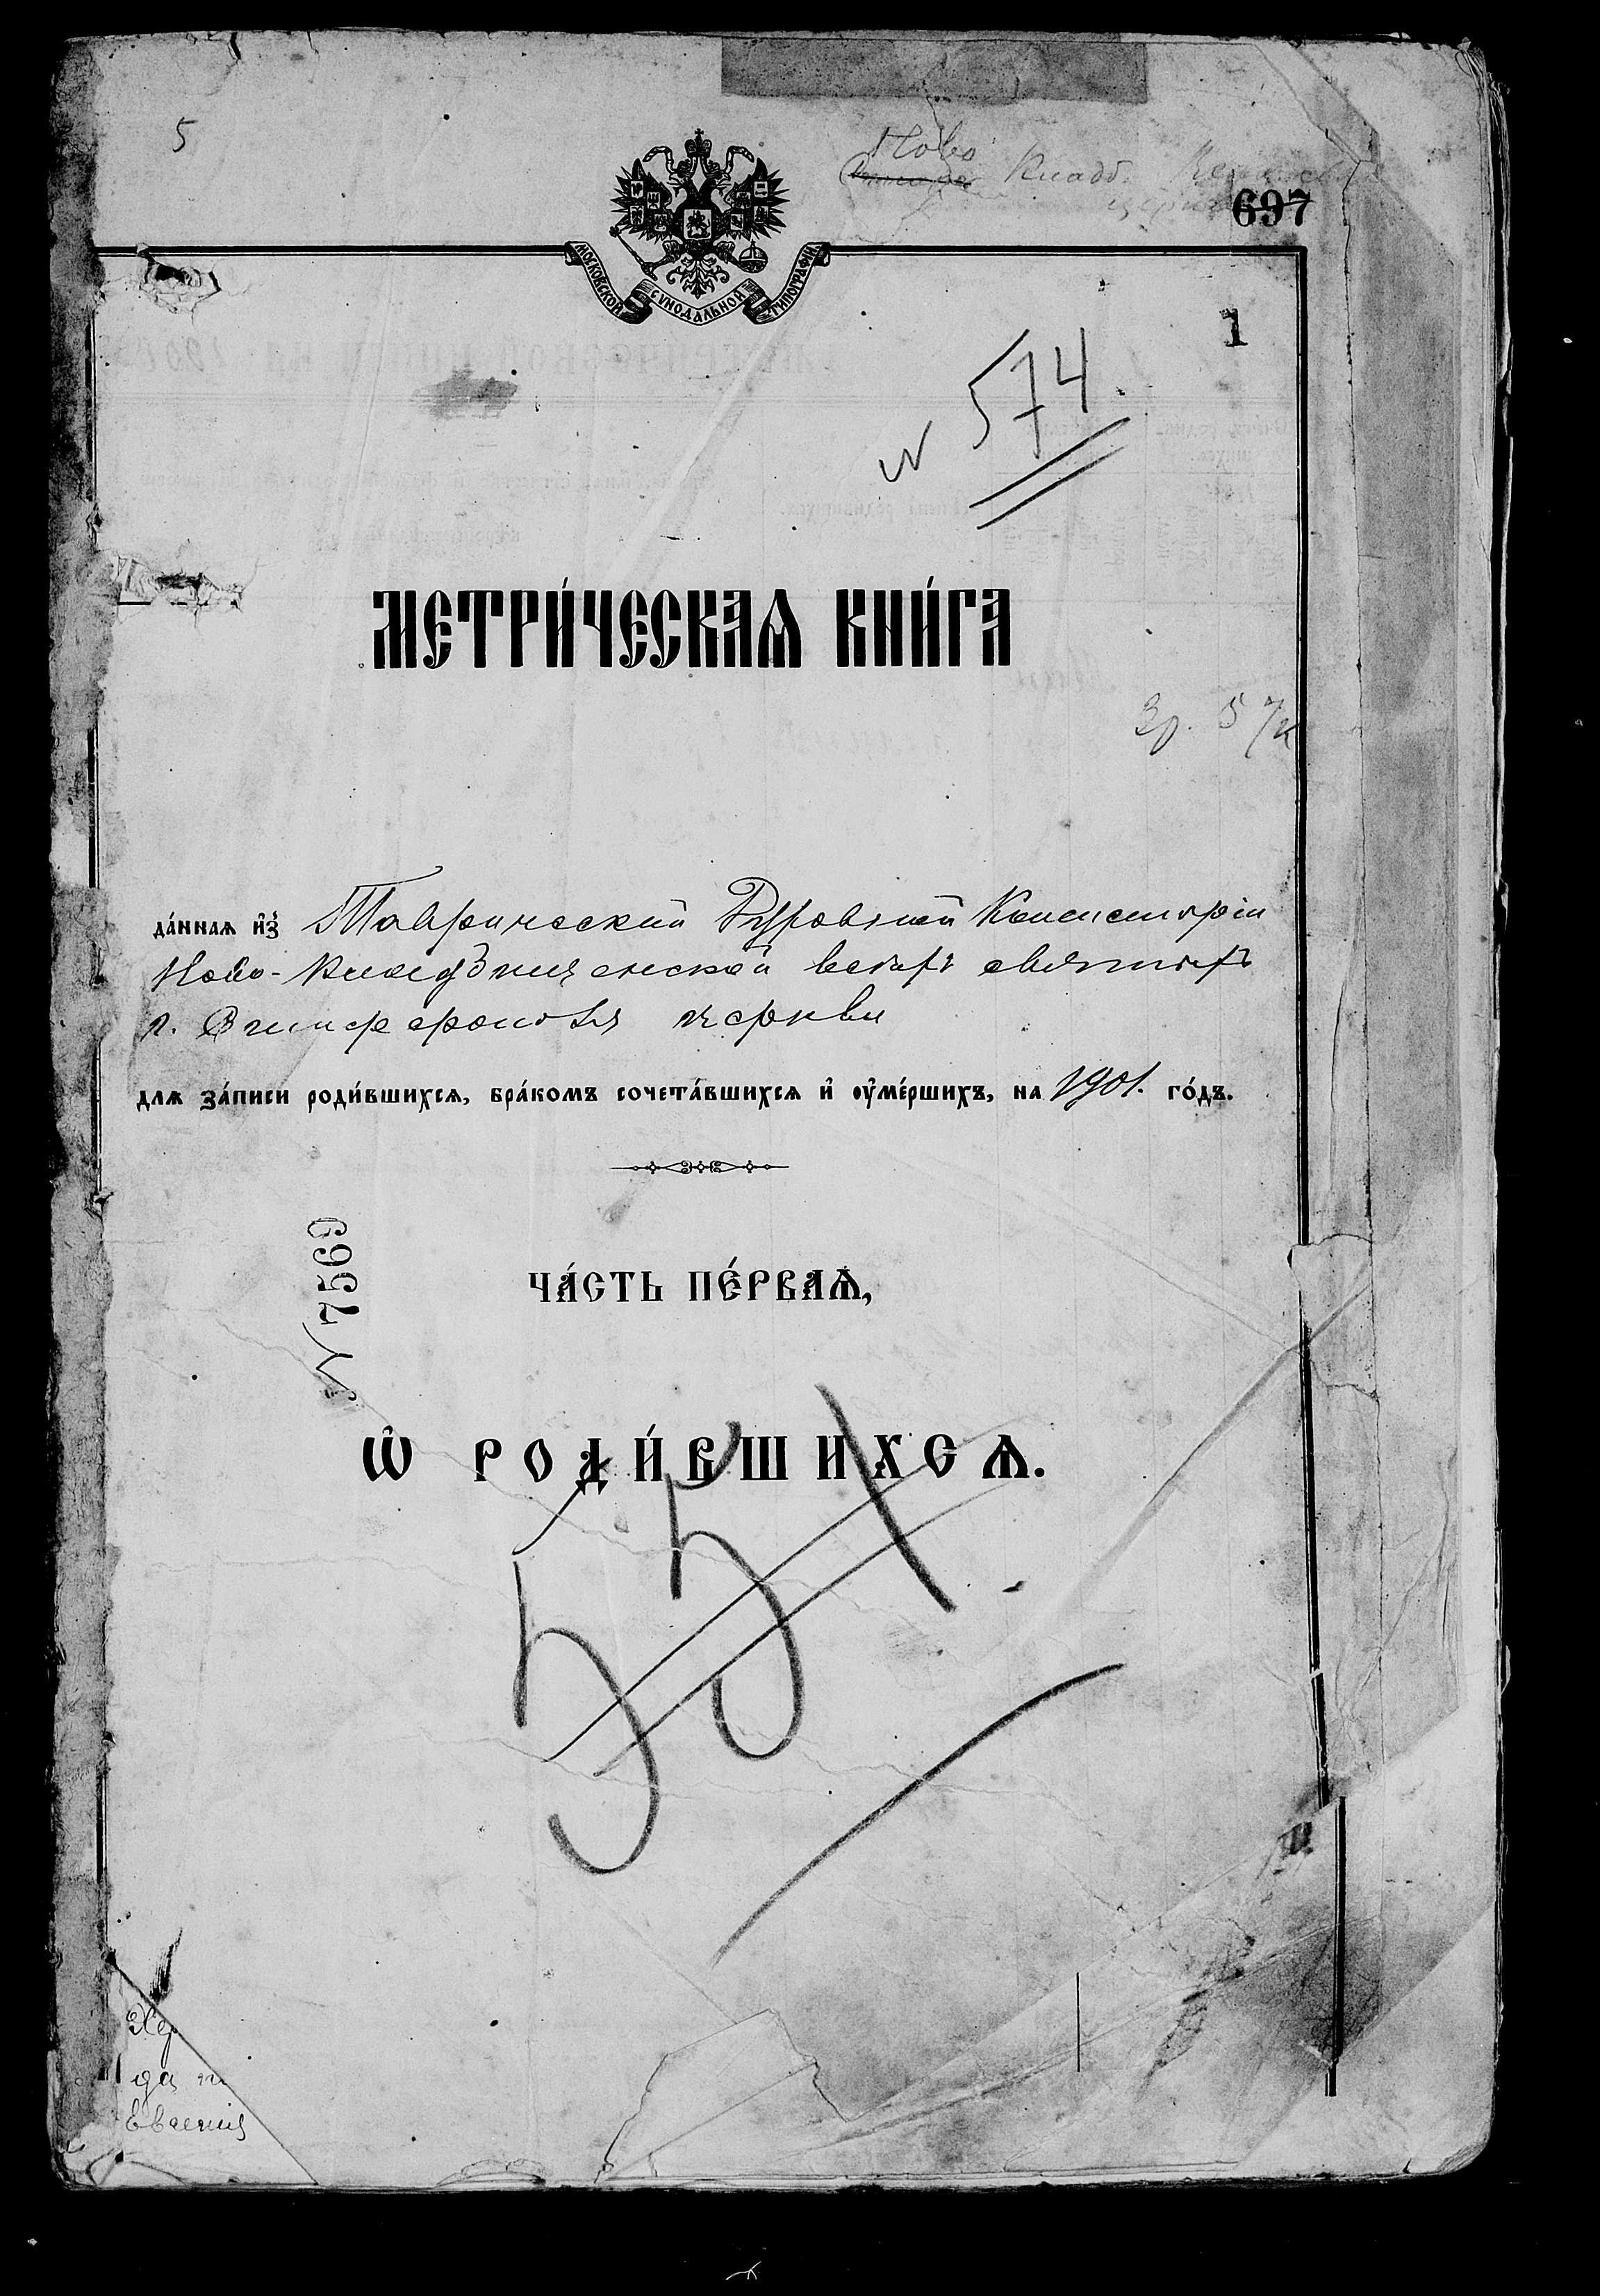 5
Ново
Кладб.
697
МОСКОВСКОЙ СѴНОДАЛЬНОЙ ТИПОГРАФІИ
1
N 574.
МЕТРИ́ЧЕСКАѦ КНИ́ГА
да́ннаѧ и҆з̾ Таврической Духовной Консисторіи
Ново-Кладбищенской всѣхъ святыхъ
г. Симферополя церкви
длѧ за́писи роди́вшихсѧ, бра́комъ сочета́вшихсѧ и҆ оу҆ме́ршихъ, на 1901. го́дъ.
N 7569
ЧА́СТЬ ПЕ́РВАѦ,
Ѡ҆ РОДИ́ВШИХСѦ.
551
да
Евгенія